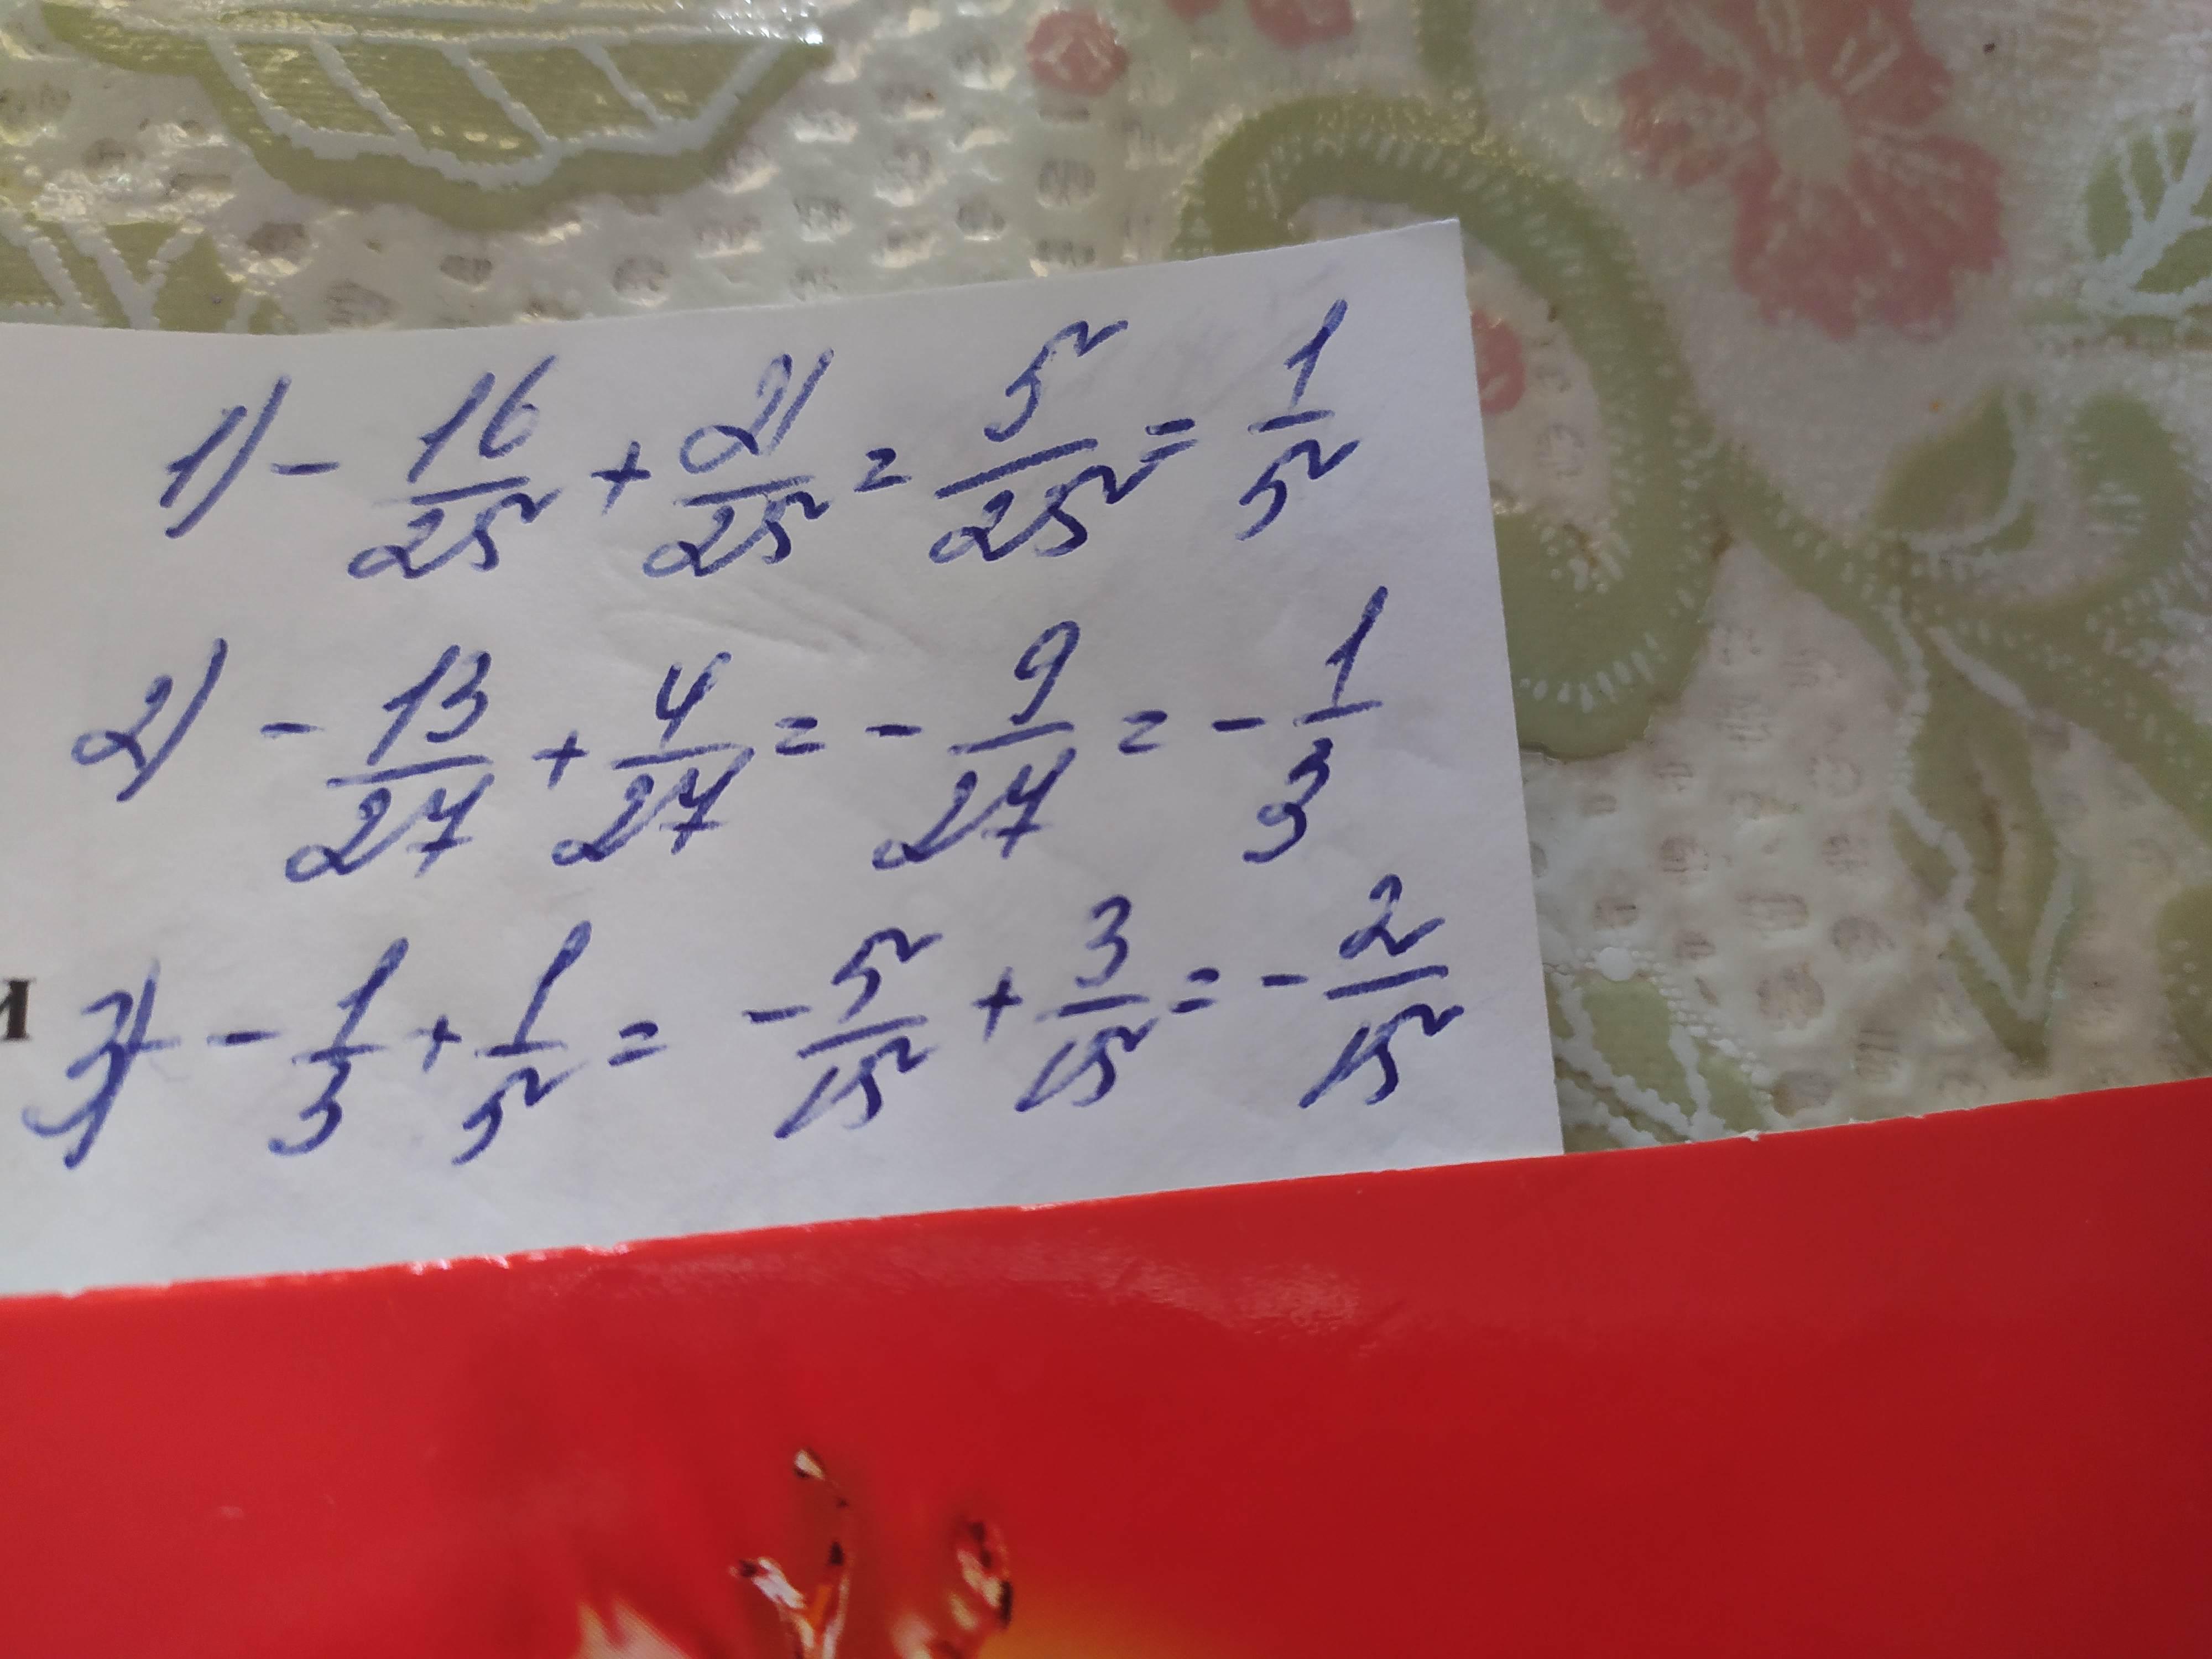 1) - 16/25 + 21/25 = 5/25 = 1/5
2) - 13/27 + 4/27 = - 9/27 = - 1/3
3) - 1/3 + 1/5 = - 5/15 + 3/15 = - 2/15